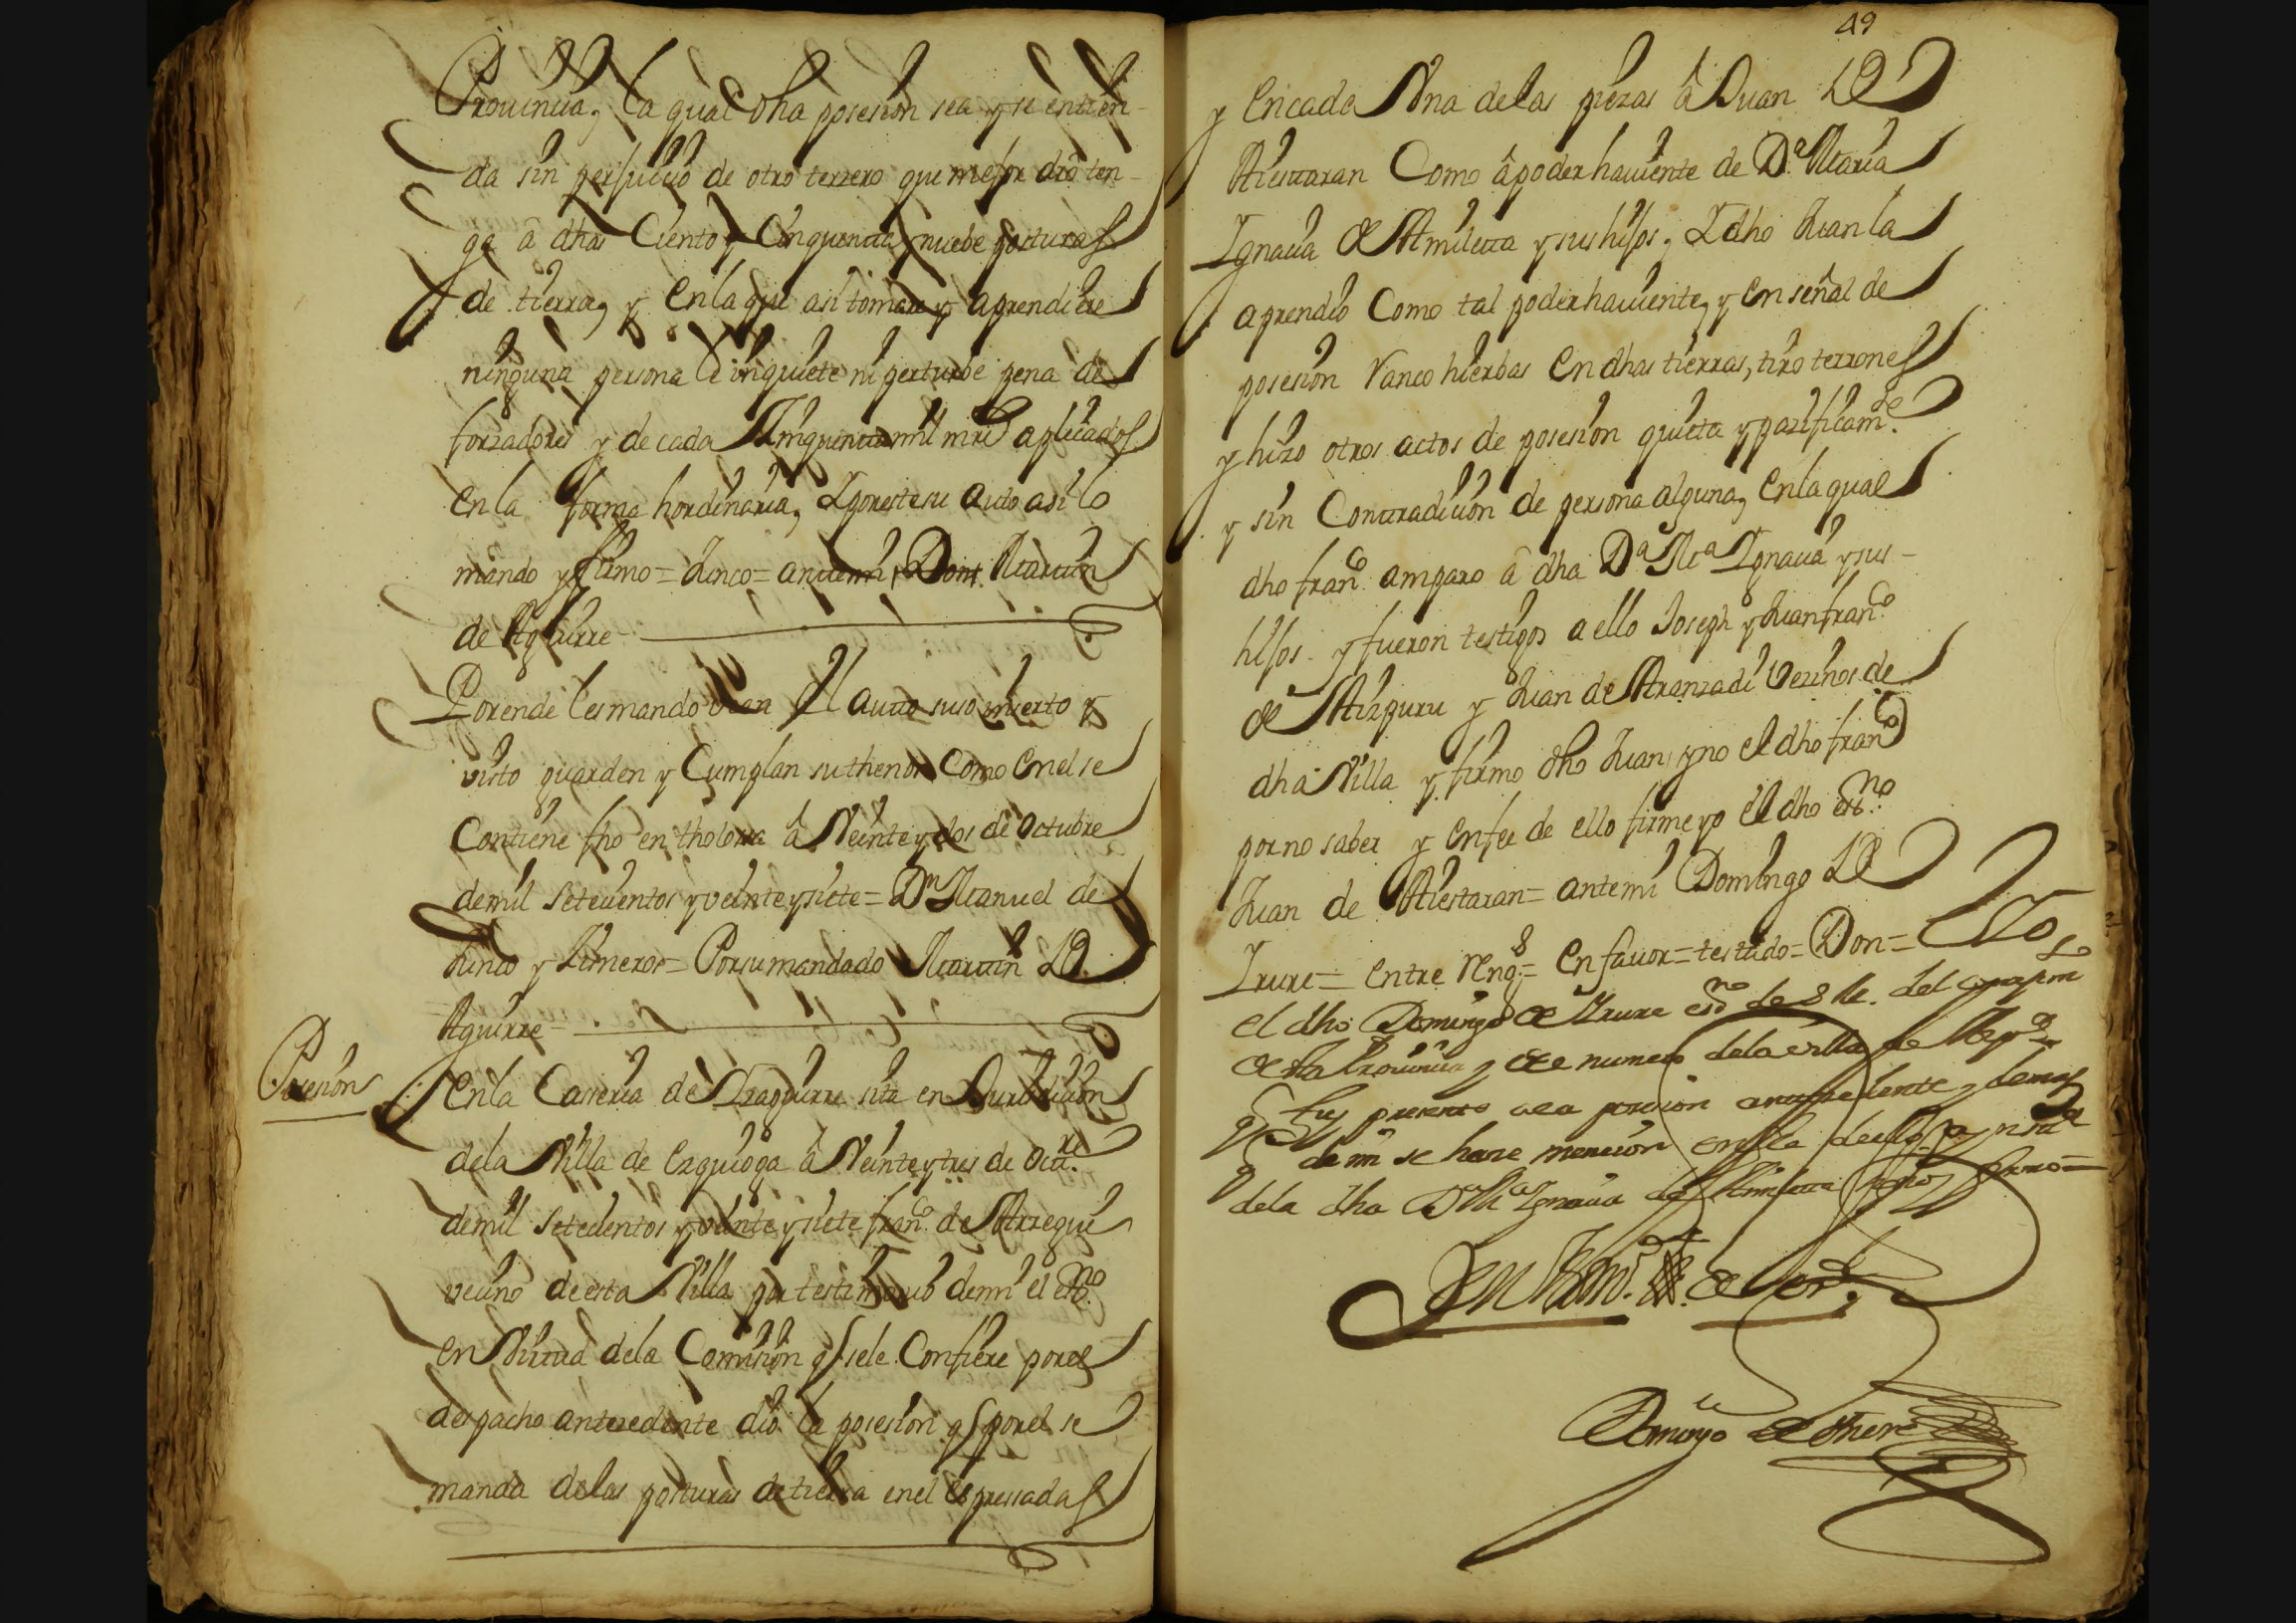 Prouincia, la qual dha posesion sea y se entien-
da sin perjuicio de otro terzero que mejor dro ten-
ga â dhas Ciento y Cinquenta y nuebe posturas
de tierra, y en la que asi tomare y aprendiere
ninguna persona le inquiete ni perturbe pena de
forzadores y de cada Cinquenta mil mrs aplicados
en la forma hordinaria, Y por este su auto asi lo
mando y firmo = Junco = ante mi, Don Martin
de Aguirre
Por ende les mando Vean el auto suso inserto y
visto guarden y Cumplan su thenor Como en el se
Contiene fho en tholossa â Veinte y dos de octubre
de mil setecientos y veinte y siete = Dn Manuel de
Junco y Zisneros = Por su mandado Martin de
Aguirre
Posesion
En la Casseria de Izaguirre sita en Jurisdicion
de la Villa de Ezquioga â Veinte y tres de octre
de mil setecientos y veinte y siete franco de Arregui
vecino de esta Villa por testimonio de mi el esno
en Virtud de la Comision q se le Confiere por el
despacho antezedente dio la posesion q por el se
manda de las posturas de tierra en el espressadas
49
y en cada Vna de las piezas â Juan de
Aiestaran Como âpoderhauiente de Da Maria
Ygnacia de Amiletta y sus hijos, Y dho Juan la
aprendio Como tal poderhauiente, y en señal de
posesion Ranco hierbas en dhas tierras, tiro terrones
y hizo otros actos de posesion quieta y pazificamte
y sin Contradicion de persona alguna, en la qual
dho franco amparo â dha Da Ma Ygnacia y sus
hijos y fueron testigos a ello Joseph y Juan franco
de Aizpuru y Juan de Aranzadi Vezinos de
dha Villa y firmo dho Juan, y no el dho franco
por no saber y en fee de ello firme yo el dho esno
Juan de Aiestaran = ante mi Domingo de
Yrure = entre Rengs = en fauor = testado = Don = Yo
el dho Domingo de Yrure esno de S M. del
de sta Prouincia y del numero de la villa de
q fuy presente a la posesion antezedente y demas
q de mi se haze mencion en fee de ello
de la dha Da Ma Ygnacia de Amiletta signo y firmo =
En testimo de Verd.
Domingo de Yrure